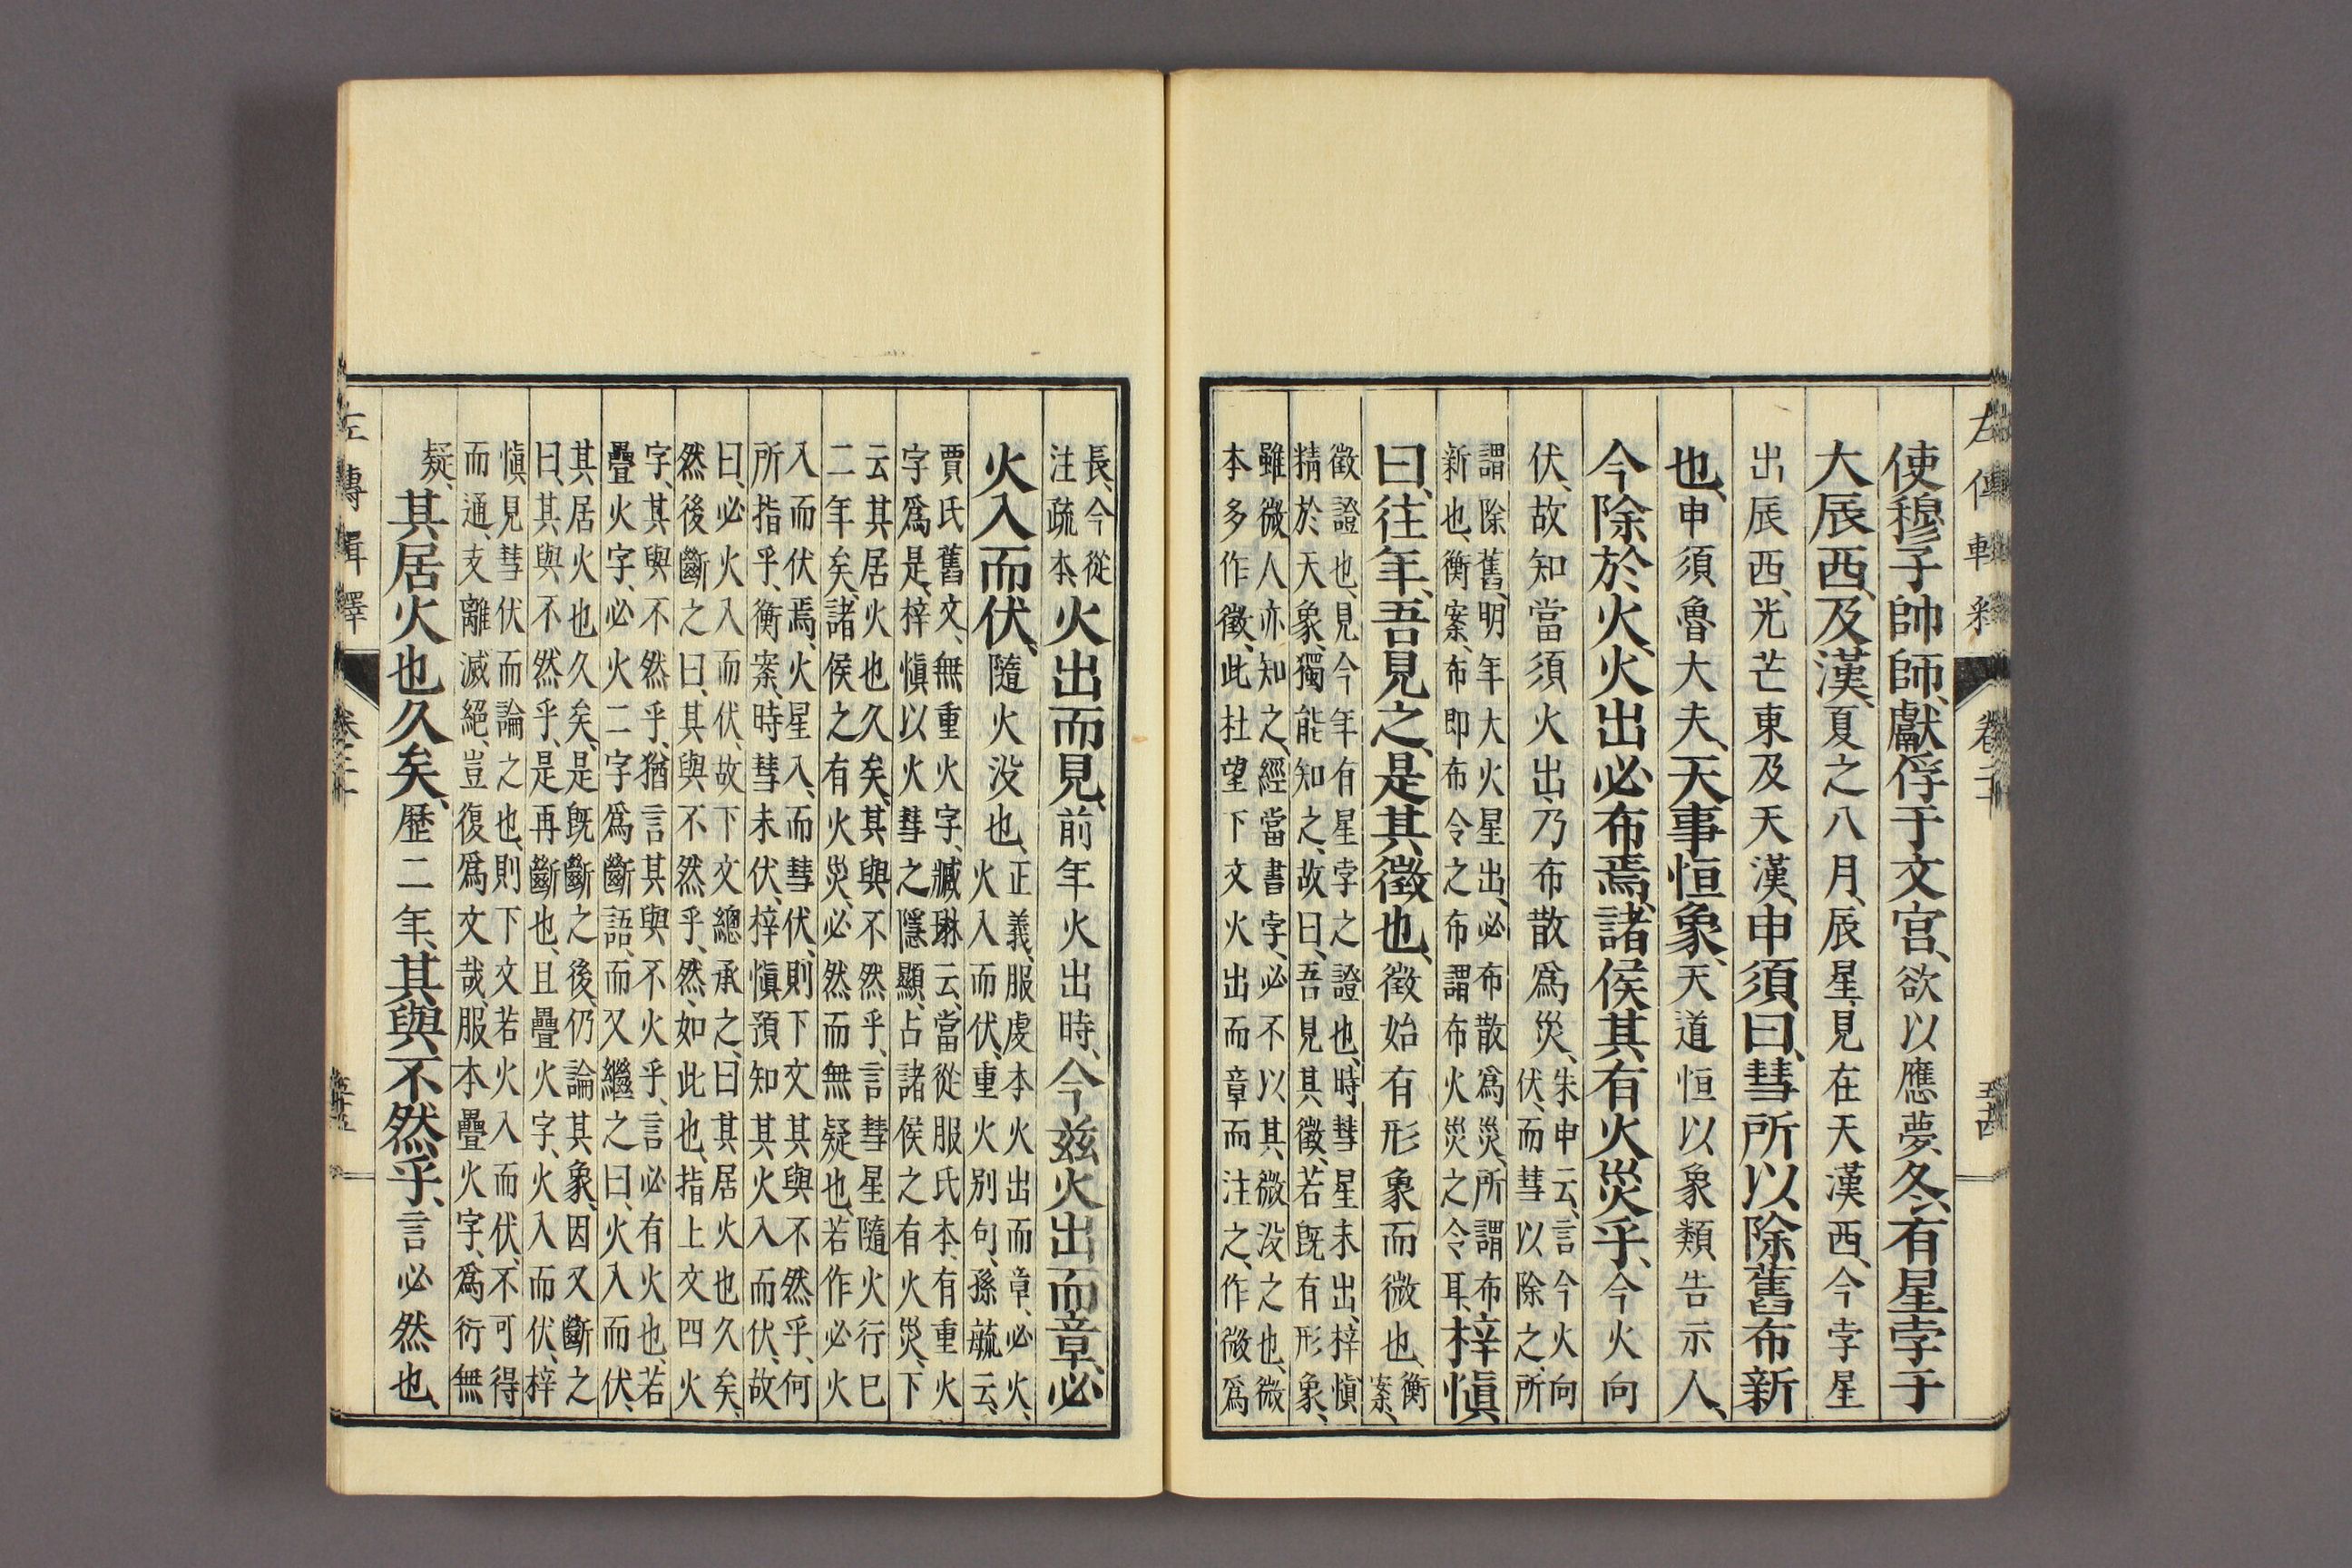 使穆子帥師、獻俘于文宮、欲以應夢、冬、有星孛于
大辰西、及漢、夏之八月、辰星、見在天漢西、今孛星
出辰西、光芒東及天漢、申須、曰、彗所以除舊布新
也、申須、魯大夫、天事恒象、天道恒以象類、告示人、
今除於火、火出必布焉、諸侯其有火災乎、今火向
伏、故知當須火出、乃布散爲災、朱申云、言今火向
伏、而彗以除之、所
謂除舊、明年大火星出、必布散爲災、所謂布
新也、衡案、布即布令之布、謂布火災之令耳、梓愼、
曰、往年、吾見之、是其徵也、徵始有形象而微也、衡
案、
徵證也、見今年有星孛之證也、時彗星未出、梓愼
精於天象、獨能知之、故曰、吾見其徵、若既有形象、
雖微人亦知之、經當書孛、必不以其微没之也、微
本多作徵、此杜望下文火出而章而注之、作微爲
長、今從
注疏本、火出而見、前年火出時、今茲火出而章、必
火入而伏、隨火没也、正義、服虔本火出而章、必火、
火入而伏、重火別句、孫毓云、
賈氏舊文、無重火字、臧琳云、當從服氏本、有重火
字爲是、梓愼以火彗之隱顯、占諸侯之有火災、下
云其居火也久矣、其與不然乎、言彗星隨火行已
二年矣、諸侯之有火災、必然而無疑也、若作必火
入而伏焉、火星入、而彗伏、則下文其與不然乎、何
所指乎、衡案、時彗未伏、梓愼預知其火入而伏、故
曰、必火入而伏、故下文總承之、曰其居火也久矣、
然後斷之曰、其與不然乎、然如此也、指上文四火
字、其與不然乎、猶言其與不火乎、言必有火也、若
疊火字、必火二字爲斷語、而又繼之曰、火入而伏、
其居火也久矣、是既斷之後、仍論其象、因又斷之
曰、其與不然乎、是再斷也、且疊火字、火入而伏、梓
愼見彗伏而論之也、則下文若火入而伏、不可得
而通、支離滅絕、豈復爲文哉、服本疊火字、爲衍無
疑、其居火也久矣、歷二年、其與、不然乎、言必然也、